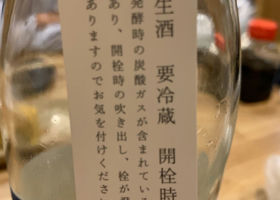 生酒　要冷蔵　開栓時
発酵時の炭酸ガスが含まれている
あり、開栓時の吹き出し、栓が飛
ありますのでお気を付けくださ